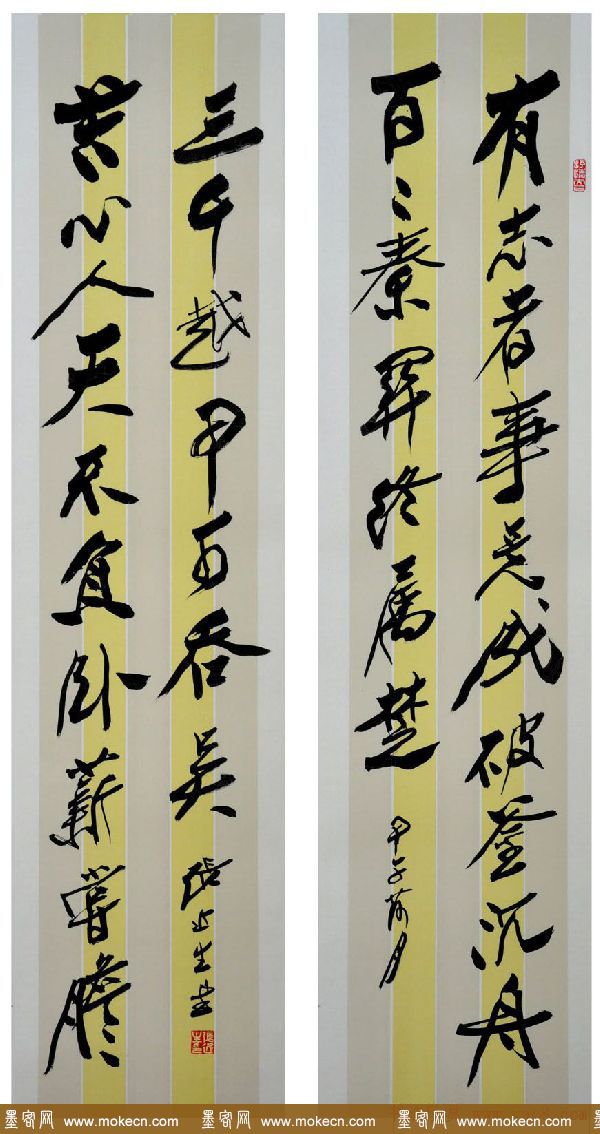 有志者事竟成破釜沉舟
百二秦關终属楚
甲子荷月
苦心人天不負卧薪嘗膽
三千越甲可吞吴
墨客网 www.mokecn.com 墨客网 www.mokecn.com 墨客网 www.mokecn.com 墨客网